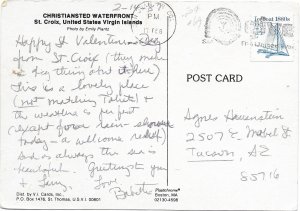 2-14-87
CHRISTIANSTED WATERFRONT
St. Croix, United States Virgin Islands
Photo by Emily Prantz
Happy St. Valentine's Day
from St. Croix (they make
a day them and it here)
This is a lovely place
(not matching Tahiti) &
the weather is perfect
(except for a rain shower
today - a welcome relief)
and as always the sea is
beautiful. Greetings to you
&
Love
Babette
Dist. by V.I. Cards, Inc.
P.O. Box 1476, St. Thomas, U.S.V.I. 00801
Plastichrome
Boston, MA
02130-4598
PM
FEB
Iceboat 1880s
POST CARD
Agnes Hauenstein
2507 E. Mabel St
Tucson, AZ
85716